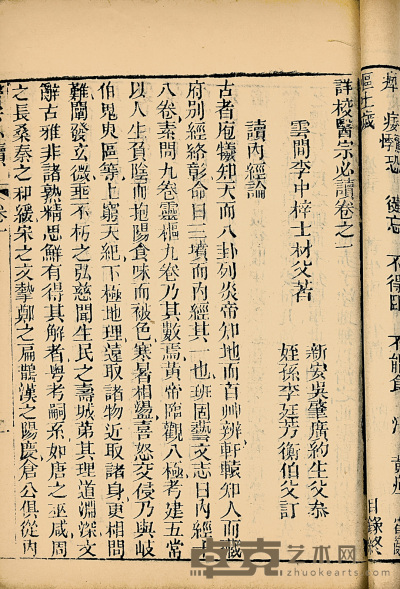 目錄終
詳校醫宗必讀卷之一
雲間李中梓士材父著
新安吳肇廣約生父參
姪孫李廷芳衡伯父訂
讀內經論
古者庖犧知天而八卦列炎帝知地而百艸辨軒轅知人而臟
府別經絡彰命曰三墳而內經其一也班固藝文志曰內經十
八卷素問九卷靈樞九卷乃其數焉黃帝臨觀八極考建五常
以人生負陰而抱陽食味而被色寒暑相盪喜怒交侵乃與岐
伯鬼臾區等上窮天紀下極地理遠取諸物近取諸身更相問
難闡發玄微垂不朽之弘慈開生民之壽域第其理道淵深文
辭古雅非諸熟精思鮮有得其解者粵考嗣系如唐之巫咸周
之長桑秦之和緩宋之文摯鄭之扁鵲漢之陽慶倉公俱從內
卓克艺术网
www.zhuokearts.com